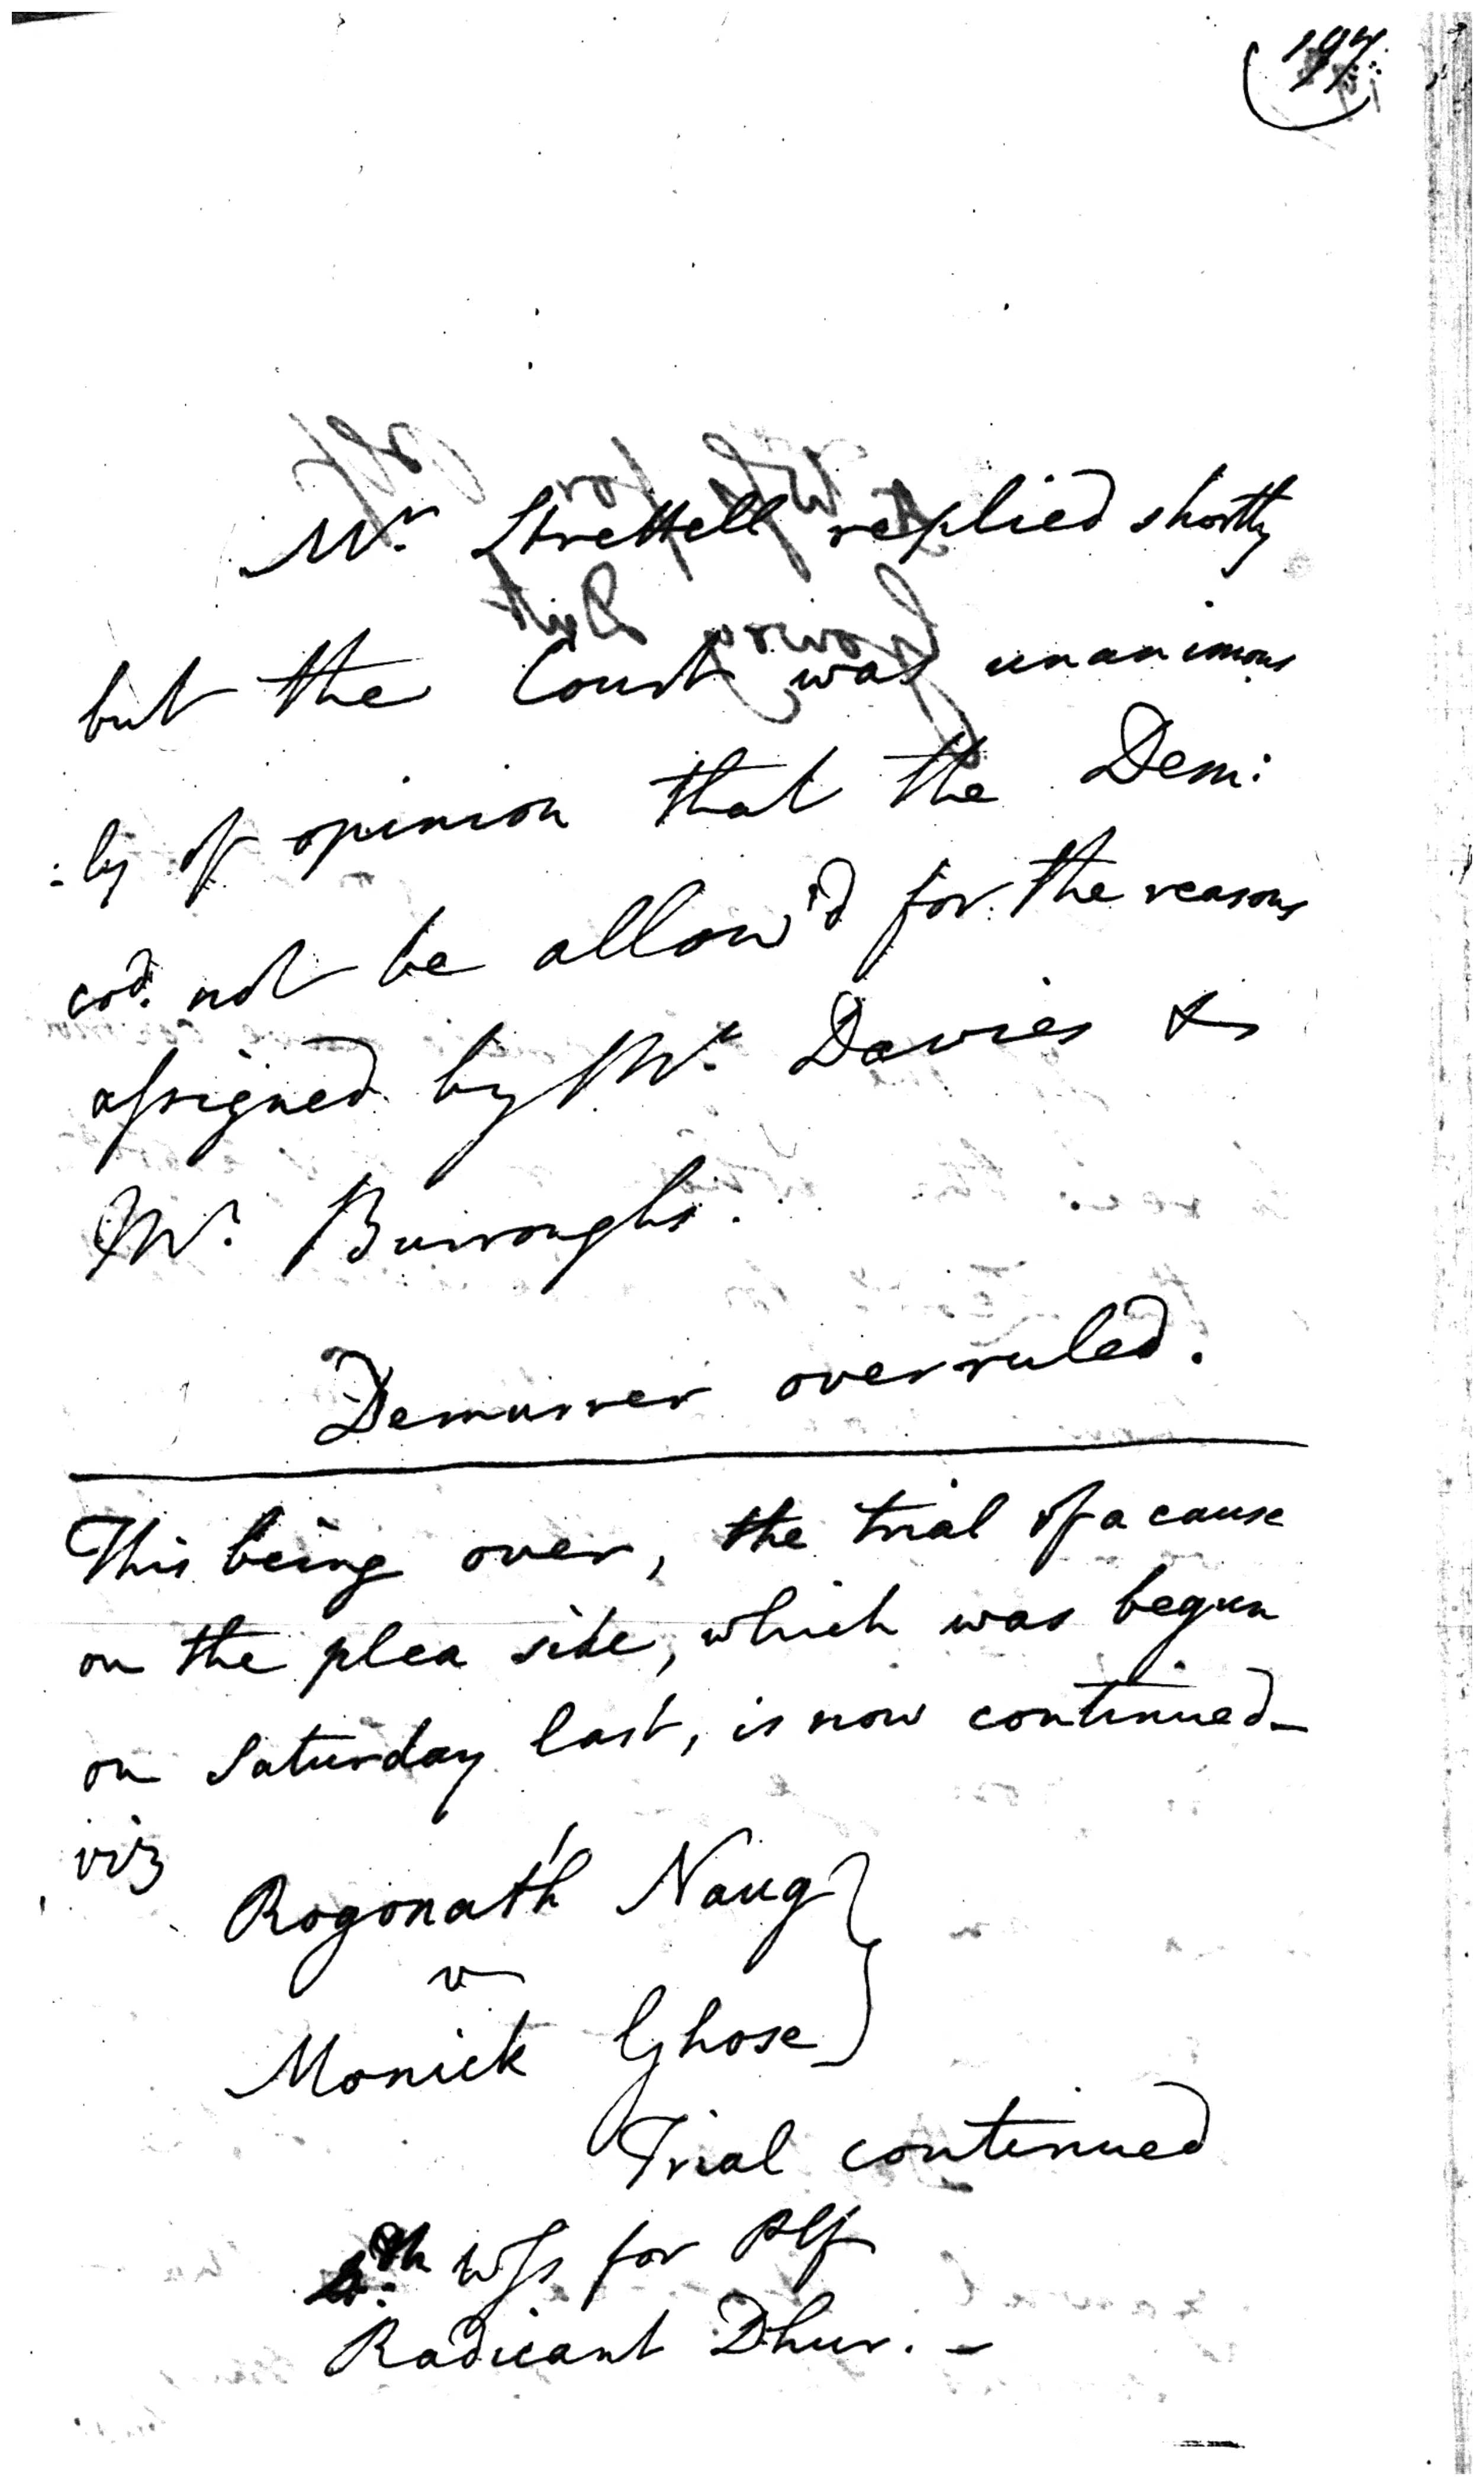 197
Mr. Strettell replied shortly
but the Court was unanimous
:ly of opinion that the Dem:
cod. not be allow'd for the reasons
assigned by Mr. Davies &
Mr. Burroughs.
Demurrer overruled.
This being over, the trial of a cause
on the plea side, which was begun
on Saturday last, is now continued_
viz
Rogonath Naug
v
Monick Ghose
Trial continued
wss for Plf
Radicant Dhur. -